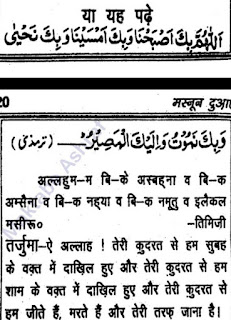 या यह पढ़े
اَللّٰهُمَّ بِكَ اَصْبَحْنَا وَبِكَ اَمْسَيْنَا وَبِكَ نَحْيٰى
20 मस्नून दुआ
وَبِكَ نَمُوْتُ وَاِلَيْكَ الْمَصِيْرُ (ترمذی)
अल्लाहुम-म बि-के अस्बह्ना व बि-क
अम्सैना व बि-क नह्या व बि-क नमूतु व इलैकल
मसीरू० -तिमिजी
तर्जुमा-ऐ अल्लाह ! तेरी कुदरत से हम सुबह
के वक़्त में दाखिल हुए और तेरी कुदरत से हम
शाम के वक़्त में दाखिल हुए और तेरी कुदरत से
हम जीते हैं, मरते हैं और तेरी तरफ़ जाना है।